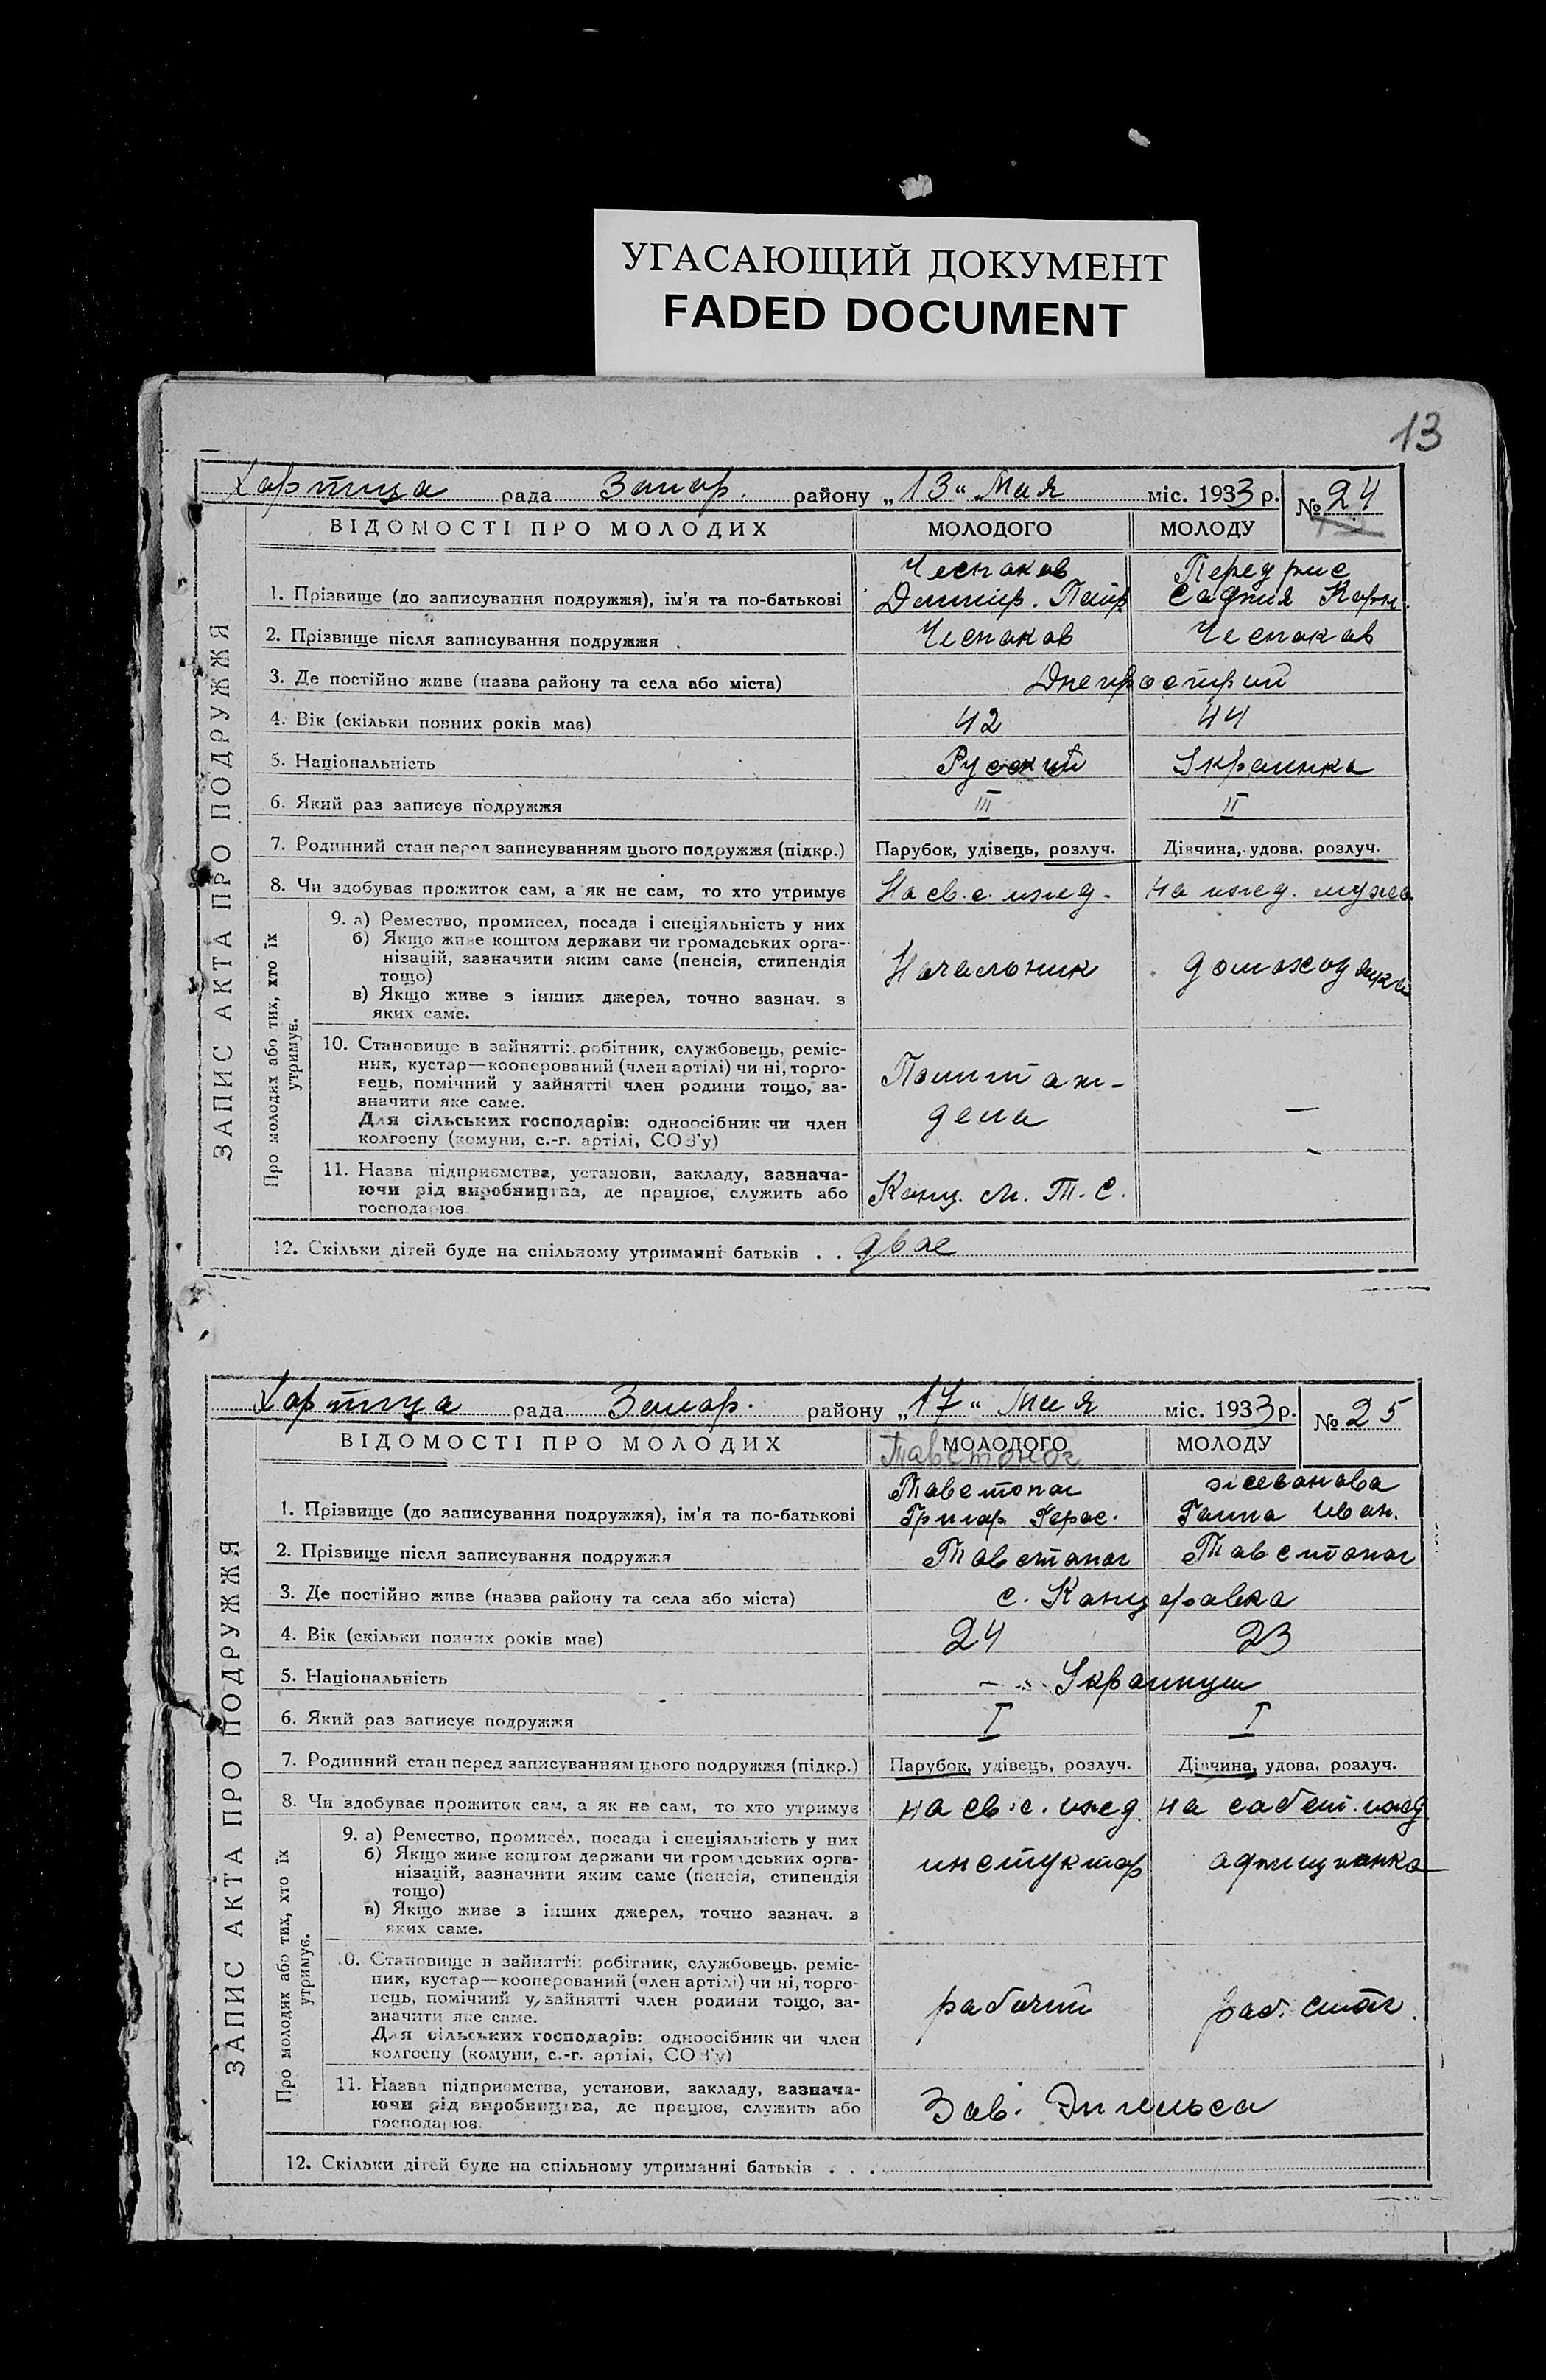 УГАСАЮЩИЙ ДОКУМЕНТ
FADED DOCUMENT
13
Хортица рада Запор. району „13“ Мая міс. 1933 р. № 24
ВІДОМОСТІ ПРО МОЛОДИХ МОЛОДОГО МОЛОДУ
ЗАПИС АКТА ПРО ПОДРУЖЖЯ
Чеснаков
1. Прізвище (до записування подружжя), ім’я та по-батькові
2. Прізвище після записування подружжя Чеснаков Чеснаков
3. Де постійно живе (назва району та села або міста)
4. Вік (скільки повних років має) 42 44
5. Національність Руский Украинка
6. Який раз записує подружжя III II
7. Родинний стан перед записуванням цього подружжя (підкр.) Парубок, удівець, розлуч. Дівчина, удова, розлуч.
8. Чи здобуває прожиток сам, а як не сам, то хто утримує На св. с. ижд. на ижд. мужа
Про молодих або тих, хто їх утримує.
9. а) Ремество, промисел, посада і спеціяльність у них
б) Якщо живе коштом держави чи громадських орга-
нізацій, зазначити яким саме (пенсія, стипендія
тощо)
Начальник
в) Якщо живе з інших джерел, точно зазнач. з
яких саме.
10. Становище в зайнятті: робітник, службовець, реміс-
ник, кустар—кооперований (член артілі) чи ні, торго-
вець, помічний у зайнятті член родини тощо, за-
значити яке саме.
Для сільських господарів: одноосібник чи член
колгоспу (комуни, с.-г. артілі, СОЗ’у)
—
11. Назва підприємства, установи, закладу, зазнача-
ючи рід виробництва, де працює, служить або
господарює
Канц. М. Т. С.
12. Скільки дітей буде на спільному утриманні батьків . . двае
Хортица рада Запор. району „17“ Мая міс. 1933 р. № 25
ВІДОМОСТІ ПРО МОЛОДИХ МОЛОДОГО МОЛОДУ
ЗАПИС АКТА ПРО ПОДРУЖЖЯ
Товстоног
Товстоног
1. Прізвище (до записування подружжя), ім’я та по-батькові Григор. Герас. Ганна Иван.
2. Прізвище після записування подружжя Товстоног Товстоног
3. Де постійно живе (назва району та села або міста) с. Канцеравка
4. Вік (скільки повних років має) 24 23
5. Національність Украинцы
6. Який раз записує подружжя I I
7. Родинний стан перед записуванням цього подружжя (підкр.) Парубок, удівець, розлуч. Дівчина, удова, розлуч.
8. Чи здобуває прожиток сам, а як не сам, то хто утримує на св. с. ижд. на собст. ижд
Про молодих або тих, хто їх утримує.
9. а) Ремество, промисел, посада і спеціяльність у них
б) Якщо живе коштом держави чи громадських орга-
нізацій, зазначити яким саме (пенсія, стипендія
тощо)
инстуктор
в) Якщо живе з інших джерел, точно зазнач. з
яких саме.
10. Становище в зайнятті: робітник, службовець, реміс-
ник, кустар—кооперований (член артілі) чи ні, торго-
вець, помічний у зайнятті член родини тощо, за-
значити яке саме.
рабочий
Для сільських господарів: одноосібник чи член
колгоспу (комуни, с.-г. артілі, СОЗ’у)
11. Назва підприємства, установи, закладу, зазнача-
ючи рід виробництва, де працює, служить або
господарює
Зав. Энгельса
12. Скільки дітей буде на спільному утриманні батьків . . .